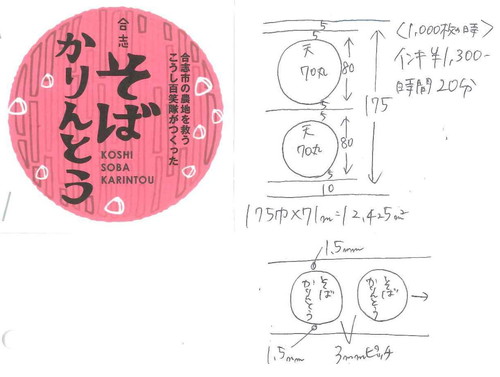 合志
そば
かりんとう
合志市の農地を救う
こうし百笑隊がつくった
KOSHI
SOBA
KARINTOU
5
5
天
70丸
80
5
5
天
70丸
80
5
10
175
〈1,000枚の時〉
インキ¥1,300-
時間20分
175巾×71m=12,425㎡
1.5mm
そば
かりんとう
そば
かりんとう
1.5mm
3mmピッチ